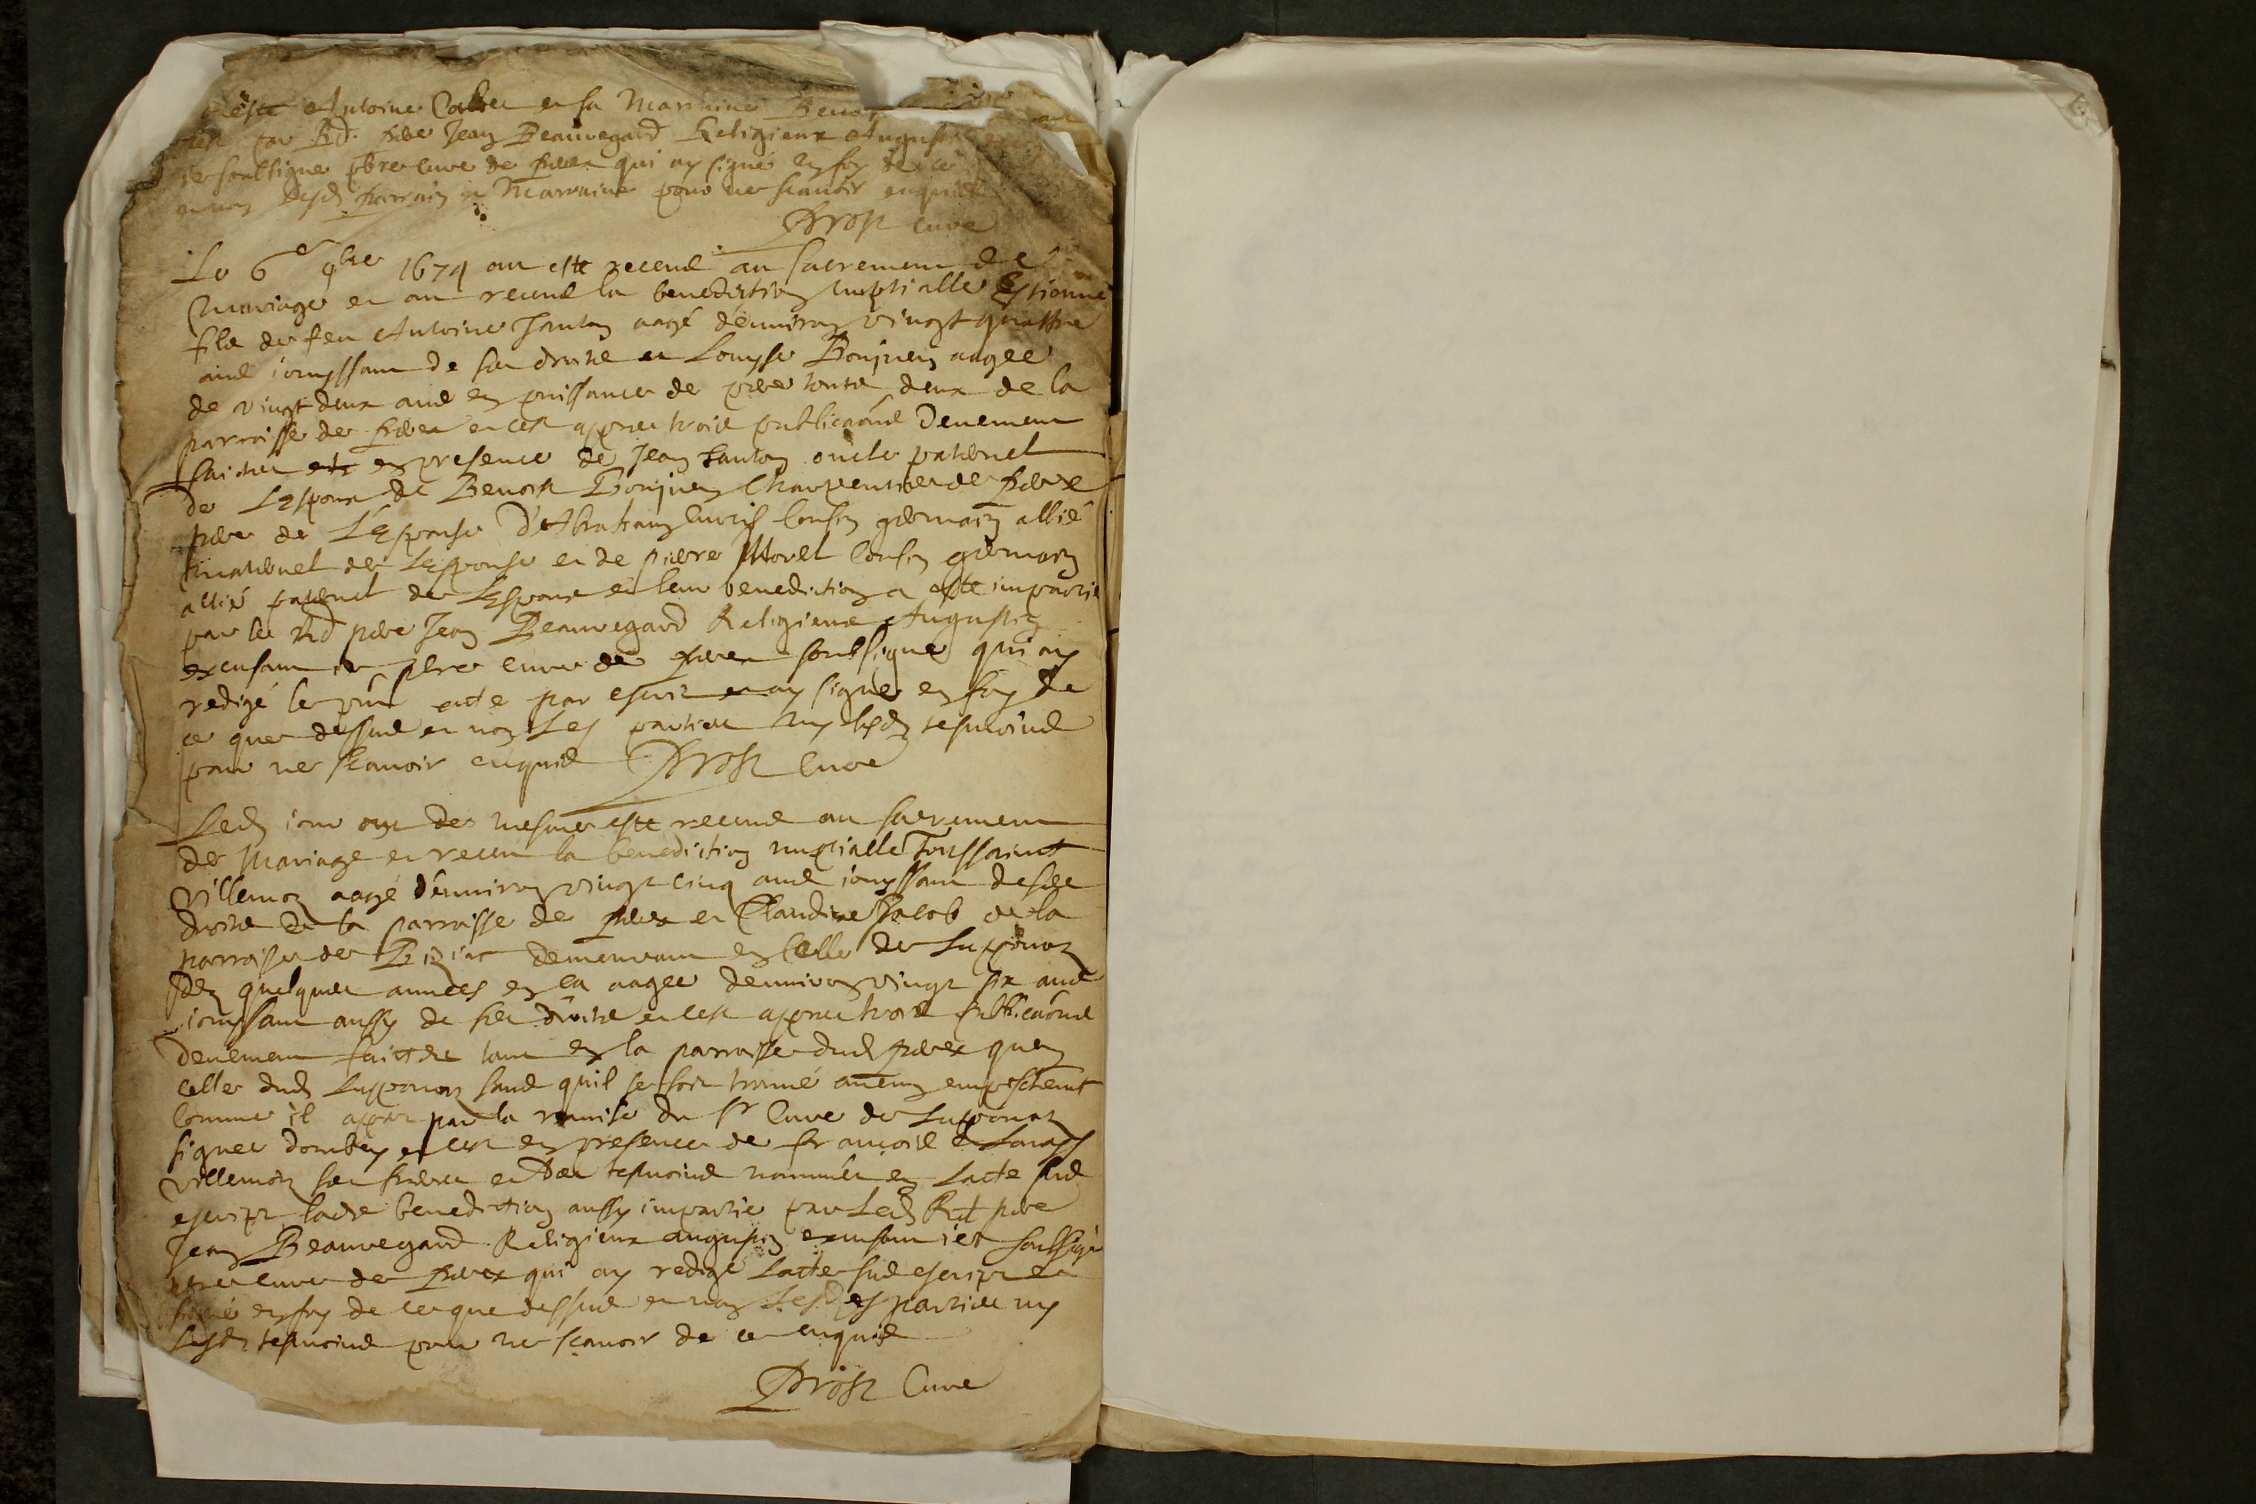 esté Antoine et sa Marraine Benoi
par Rd. père Jean Beauvegard Religieux Augustin
soubsigné pbre curé de qui ay signé en foy de ce
et non lesd parrain et Marraine pour ne scauoir enquis
Prost curé
Le 6e 9bre 1674 ont esté receus au sacrement de
Mariage et ont receus la benediction nuptialle Estienne
fils de feu Antoine Janton aagé d'enuiron vingt quattre
ans iouyssant de ses droits et Louyse Bonjuen aagee
de vingt deux ans en puissance de père touts deux de la
parroisse de et cest apres trois publicaõns deuement
faictes en presence de Jean Janton oncle paternel
de L'Espoux de Benoist Bonjuen charpentier de
père de L'Espouse d'Abraham cousin germain allié
maternel de L'Espouse et de pierre Morel cousin germain
allié paternel de L'Espoux et leur benediction a esté impartie
par le Rd père Jean Beauvegard Religieux Augustin
excusant ie pbre curé de soubsigné qui ay
redigé le pñt acte par escrit et ay signé en foy de
ce que dessus et non Les parties ny lesd tesmoins
pour ne scauoir enquis Prost Curé
Led iour ont de mesme esté receus au sacrement
de Mariage et receu la benediction nuptialle Toussaint
Villemon aagé d'enuiron vingt cinq ans iouyssant de ses
droits de la parroisse de et Claudine Jacob de la
parroisse de Biziat demeurant en celle de Lupponaz
des quelques années en ça aagee d'enuiron vingt six ans
iouyssant aussy de ses droits et cest apres trois publicaõns
deuement faictes tant en la parroisse dud quen
celle dud Lupponaz sans quil se soit trouué aucung empeschemt
Comme il appert par la remise du Sr Curé de Lupponaz
signee et cest en presence de françois et Louys
Villemon ses freres et des tesmoins nommés en Lacte sus
escript lad benediction aussy impartie par Led Rd père
Jean Beauvegard Religieux augustin excusant ie soubsigné
pbre curé de qui ay redigé Lacte sus escript et
signé en foy de ce que dessus et non Lesd parties ny
Lesd tesmoins pour ne scauoir de ce enquis
Prost Curé